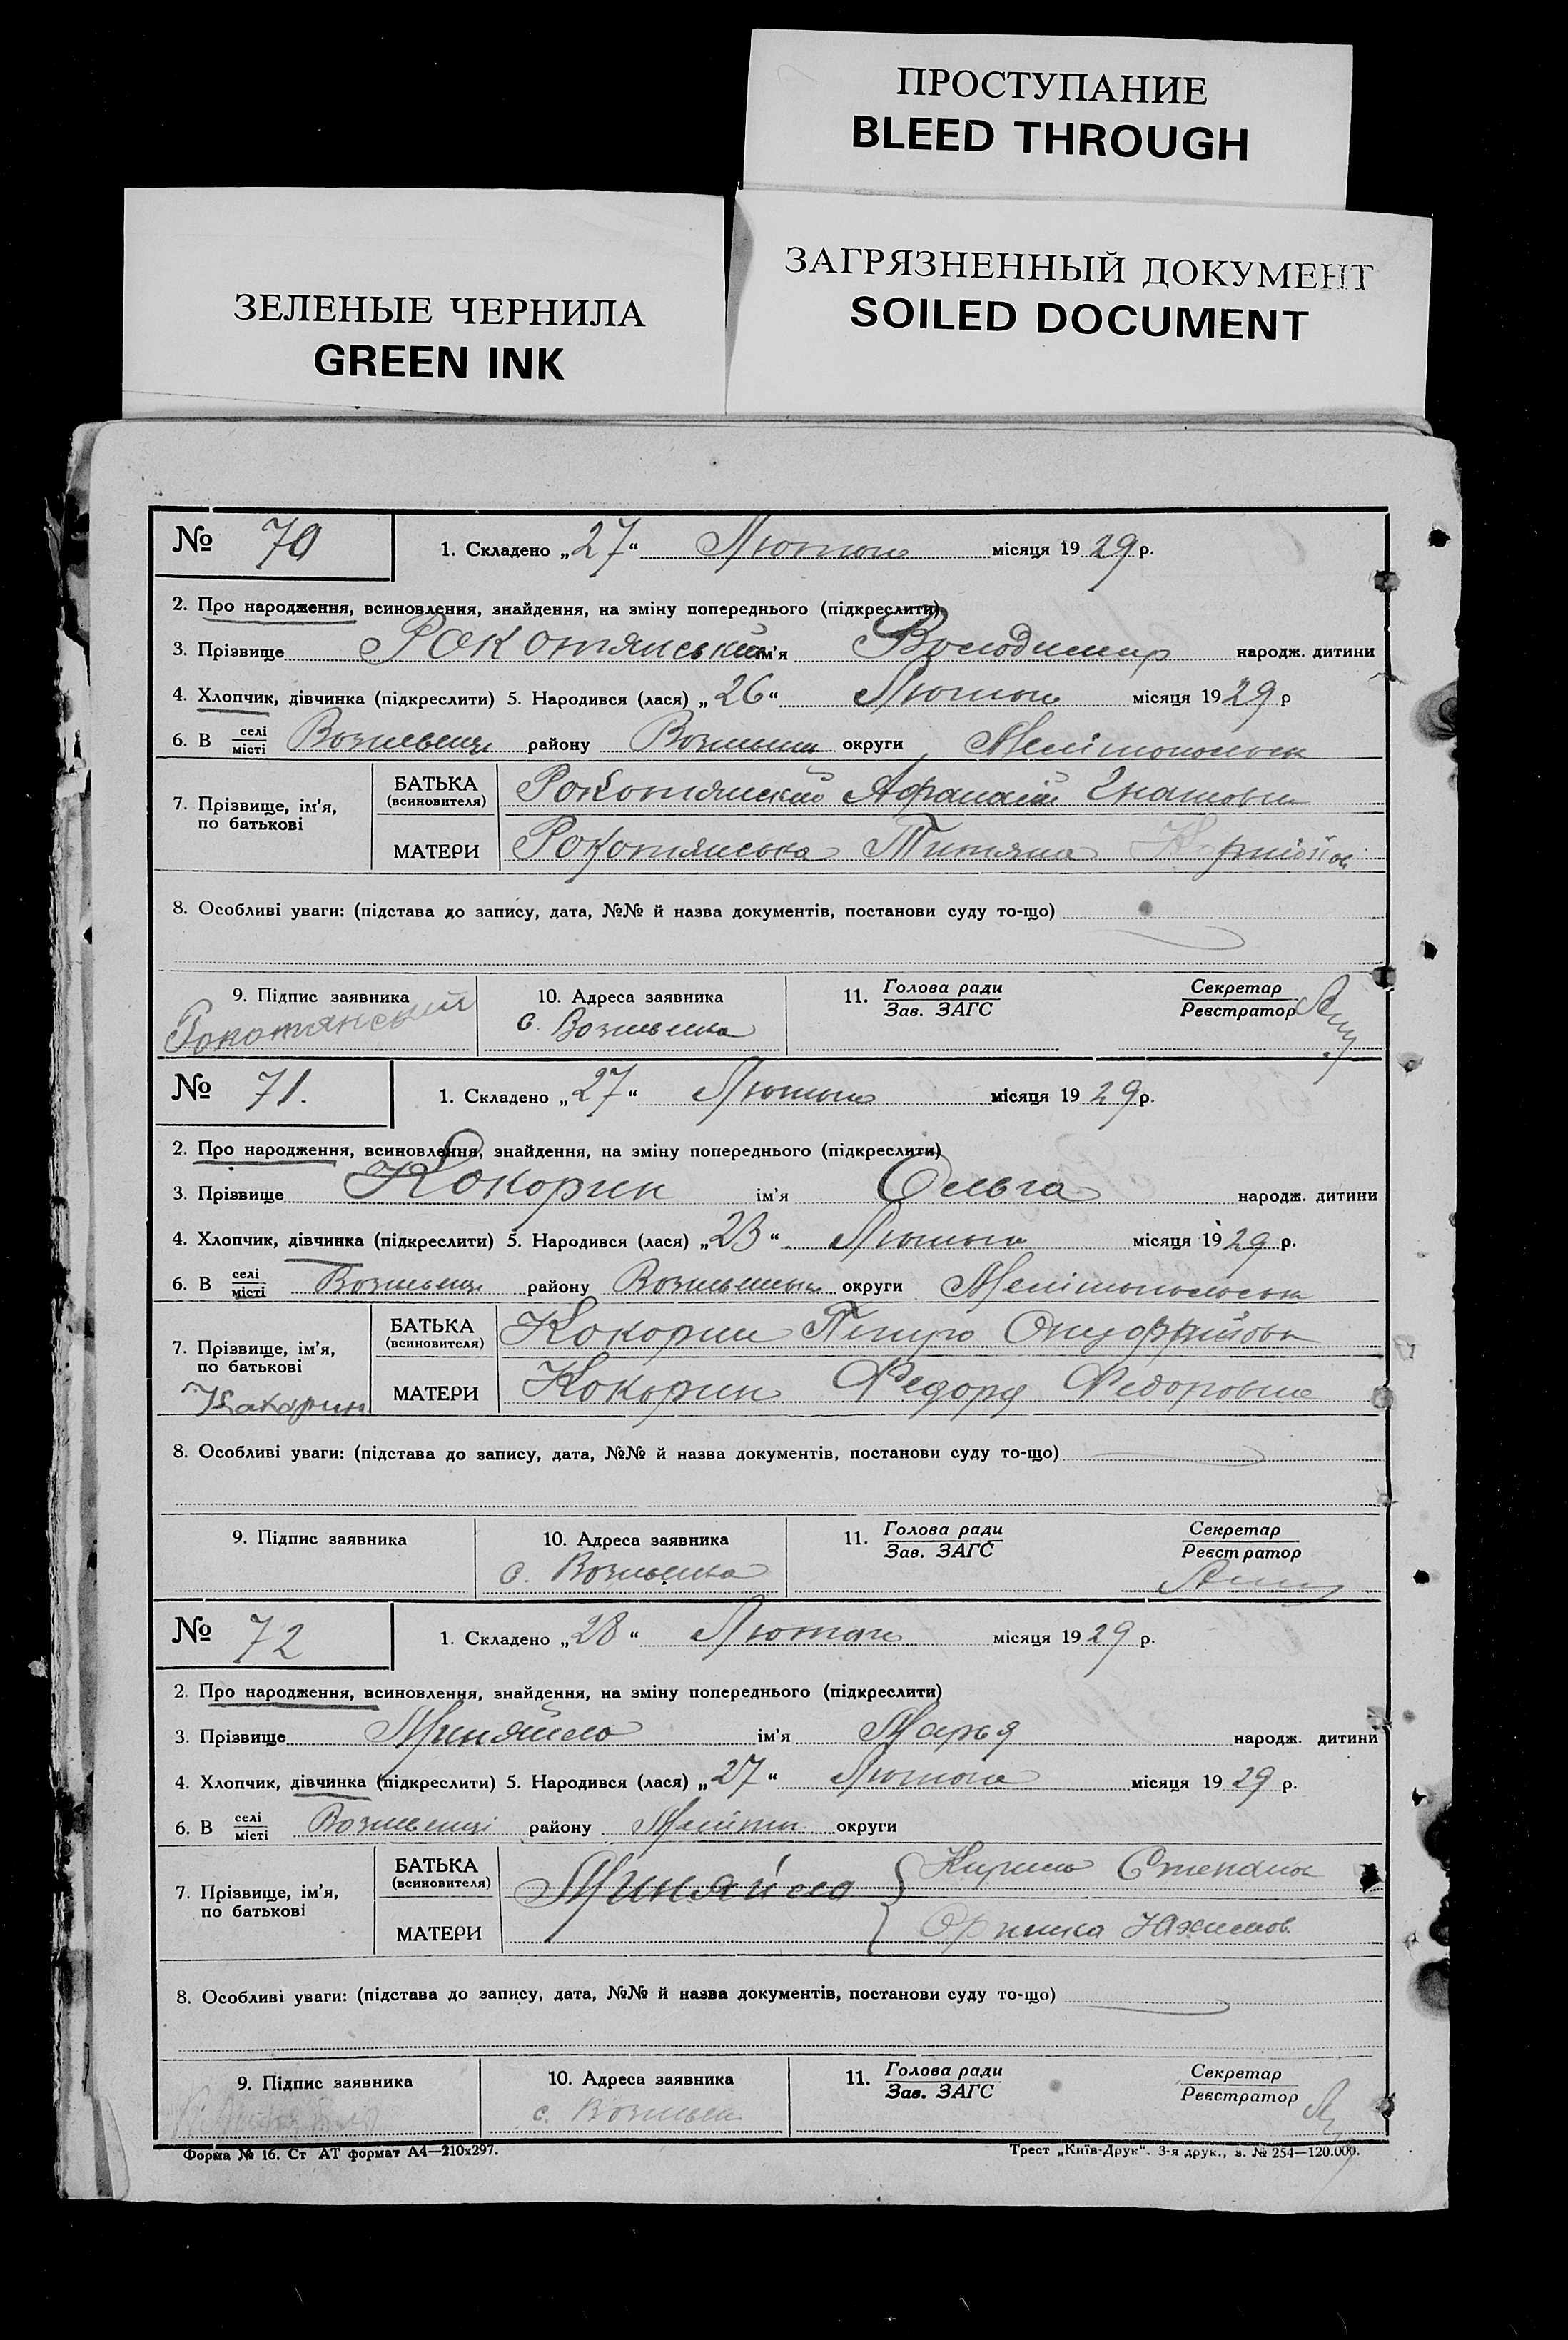 ПРОСТУПАНИЕ
BLEED THROUGH
ЗАГРЯЗНЕННЫЙ ДОКУМЕНТ
SOILED DOCUMENT
ЗЕЛЕНЫЕ ЧЕРНИЛА
GREEN INK
№ 70 1. Складено „27“ Лютого місяця 1929 р.
2. Про народження, всиновлення, знайдення, на зміну попереднього (підкреслити)
3. Прізвище Рокотянський ім’я Володимир народж. дитини
4. Хлопчик, дівчинка (підкреслити) 5. Народився (лася) „26“ Лютого місяця 1929 р
6. В селі місті району округи
7. Прізвище, ім’я, по батькові
БАТЬКА (всиновителя) Рокотянский Афанасій
МАТЕРИ Рокотянська Титяна
8. Особливі уваги: (підстава до запису, дата, №№ й назва документів, постанови суду то-що)
9. Підпис заявника 10. Адреса заявника 11. Голова ради Зав. ЗАГС Секретар Реєстратор
Рокотянський с.
№ 71. 1. Складено „27“ Лютого місяця 1929 р.
2. Про народження, всиновлення, знайдення, на зміну попереднього (підкреслити)
3. Прізвище Кокорин ім’я Ольга народж. дитини
4. Хлопчик, дівчинка (підкреслити) 5. Народився (лася) „23“ Лютого місяця 1929 р.
6. В селі місті району округи
7. Прізвище, ім’я, по батькові
БАТЬКА (всиновителя) Кокорин Петро
МАТЕРИ Кокорин Федоровна
Какорин
8. Особливі уваги: (підстава до запису, дата, №№ й назва документів, постанови суду то-що)
9. Підпис заявника 10. Адреса заявника 11. Голова ради Зав. ЗАГС Секретар Реєстратор
с.
№ 72 1. Складено „28“ Лютого місяця 1929 р.
2. Про народження, всиновлення, знайдення, на зміну попереднього (підкреслити)
3. Прізвище Миняйло ім’я Марья народж. дитини
4. Хлопчик, дівчинка (підкреслити) 5. Народився (лася) „27“ Лютого місяця 1929 р.
6. В селі місті району округи
7. Прізвище, ім’я, по батькові
БАТЬКА (всиновителя) Миняйло
МАТЕРИ
8. Особливі уваги: (підстава до запису, дата, №№ й назва документів, постанови суду то-що)
9. Підпис заявника 10. Адреса заявника 11. Голова ради Зав. ЗАГС Секретар Реєстратор
с.
Форма № 16. Ст АТ формат А4—210х297. Трест „Київ-Друк“. 3-я друк., з. № 254—120.000.